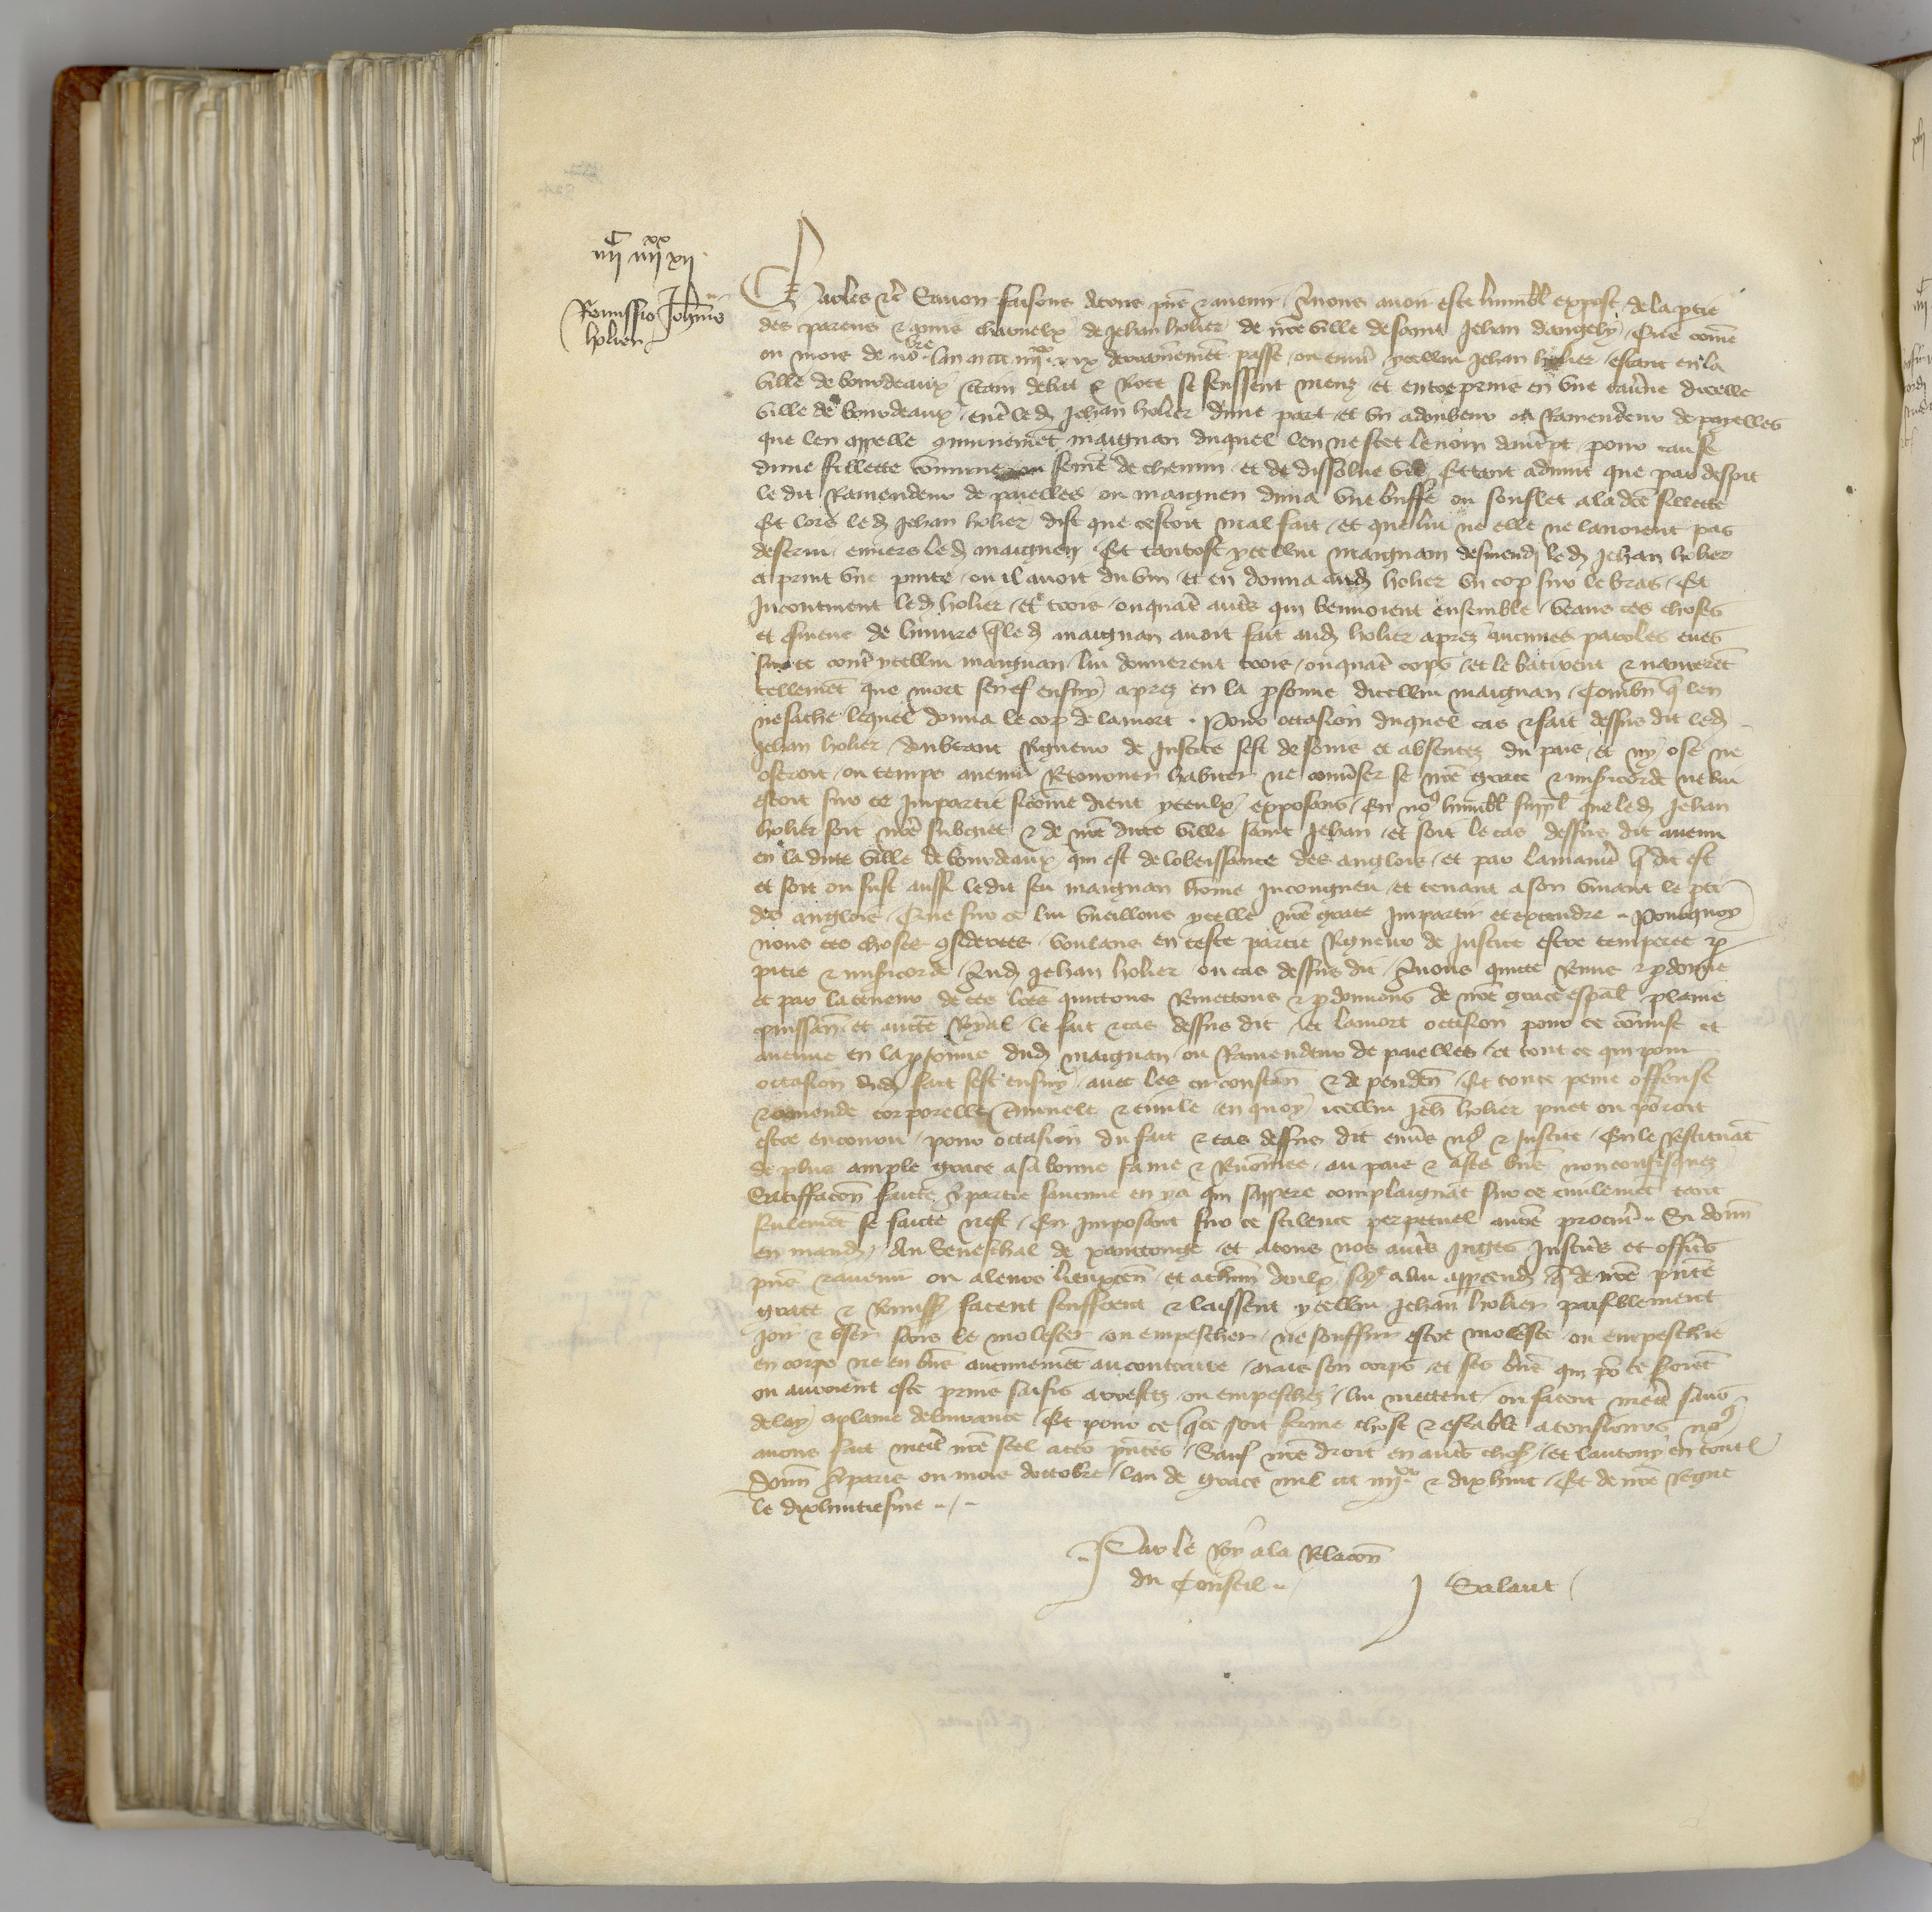 iiii c iiii xx xii
Remissio Johannis
holier
Charles etc. Savoir faisons a tous pns et avenir Nous avoir este humblemt expose de la ptie
des parens et amis charnelx de Jehan holier de nre ville de saint Jehan dangely Que come
ou mois de novbre lan m ccc iiii xx xix derrainemet passe ou envir ycellui Jehan holier estant en la
ville de bourdeaux certain debat et Riote se feussent meuz et entreprins en une taverne dicelle
ville de bourdeaux entre led Jehan holier dune part et un adoubeur ou Ramendeur de paelles
que len appelle comunemet maignan duquel len ne scet le nom dautre pt pour cause
dune fillette comune feme de chemin et de dissolue vie Et tant advint que par despit
le dit Ramendeur de paielles ou maignen dona une buffe ou soufflet a la dce fillette
Et lors led Jehan holier dist que cestoit mal fait et que lui ne elle ne lavoient pas
deservi envers led maignen Et tantost ycellui maignan desmendi led Jehan holier
et print une pinte ou il avoit du vin et en donna aud holier un cop sur le bras Et
Incontinent led holier et trois ou quatre autres qui bevoient ensemble veans ces choses
et esmeuz de linjure que led maignan avoit fait aud holier aprez aucunes paroles eues
sur ce contre ycellui maignan lui donnerent trois ou quatre cops et le batirent et navreret
tellemet que mort sen est ensuye aprez en la psonne dicellui maignan Combn que len
ne sache lequel donna le cop de la mort Pour occasion duquel cas et fait dessus dit led
Jehan holier doubtant Rigueur de Justice sest de sonie et absentez du pais et ny ose ne
oseroit ou temps avenir Retourner habiter ne converser se nre grace et misericorde ne lui
estoit sur ce Impartie sicome dient yceulx exposans En nous humblemt suppl que led Jehan
holier soit nre subgiet et de nre dicte ville saint Jehan et soit le cas dessus dit avenu
en la dicte ville de bourdeaux qui est de lobeissance des anglois et par la maniere que dit est
et soit ou fust aussi ledit feu maignan home Incongneu et tenant a son vivant le pti
des anglois Que sur ce lui vueillons ycelle nre grace Impartir et extendre Pourquoy
nous ces choses considerees voulans en ceste partie Rigueur de Justice estre temperee p
pitie et misericorde Aud Jehan holier ou cas dessus dit Avons quicte Remis et pdonne
et par la teneur de ces lres quictons Remettons et pdonnons de nre grace espal plaine
puissance et aucte Royal le fait et cas dessus dit et la mort occasion pour ce comise et
avenue en la psonne dud maignan ou Ramendeur de paielles et tout ce qui pour
occasion dud fait sest ensuy avec les circonstan et dependen Et toute peine offense
et amende corporelle criminele et civile en quoy icellui Jeh holier puet ou pourroit
estre encouru pour occasion du fait et cas dessus dit envs nous et Justice En le Restituat
de plus ample grace a sa bonne fame et Renomee au pais et a ses bns non confisquez
Satisfacon faicte a partie saucune en ya qui sappere complaignat sur ce civilemet tant
seulemet se faicte nest En Imposant sur ce scilence perpetuel a nre procur Si donn
en mand Au Seneschal de xantonge et a tous nos autres Juges Justiciers et offices
pns et avenir ou a leurs lieuxten et a chun deulx si come a lui apptendra que de nre pnte
grace et Remiss facent seuffrent et laissent ycellui Jehan holier paisiblement
Joir et user sans le molester ou empescher ne souffrir estre moleste ou empeschie
en corps ne en bns aucunemet au contraire mais son corps et ses bns qui po ce soiet
ou auroient este prins saisis arrestez ou empeschez lui mettent ou facent metre sans
delay a plaine delivrance Et pour ce que ce soit ferme chose et estable a tousjours nous
avons fait metre nre seel a ces pntes Sauf nre droit en autres choses et lautruy en tout
Donn a paris ou mois doctobre lan de grace mil ccc iiii xx et dix huit Et de nre regne
le dixhuitiesme
Par le Roy a la Relacon
du Conseil J Salaut